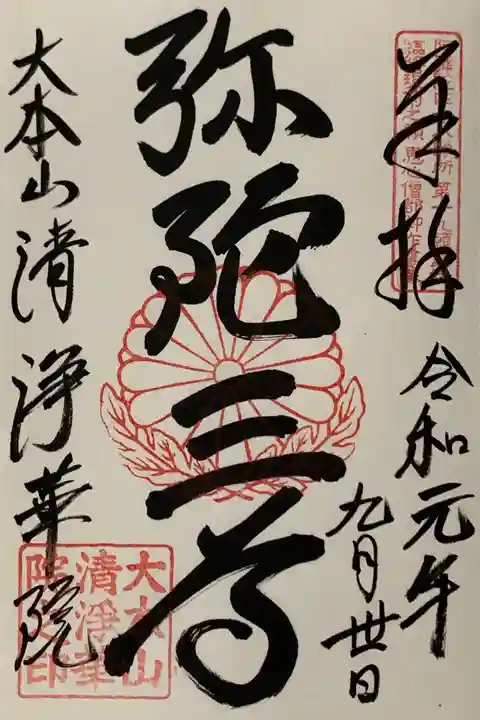 奉拝
令和元年
九月丗日
弥陀三尊
大本山清浄華院
大本山
清淨華
院之印